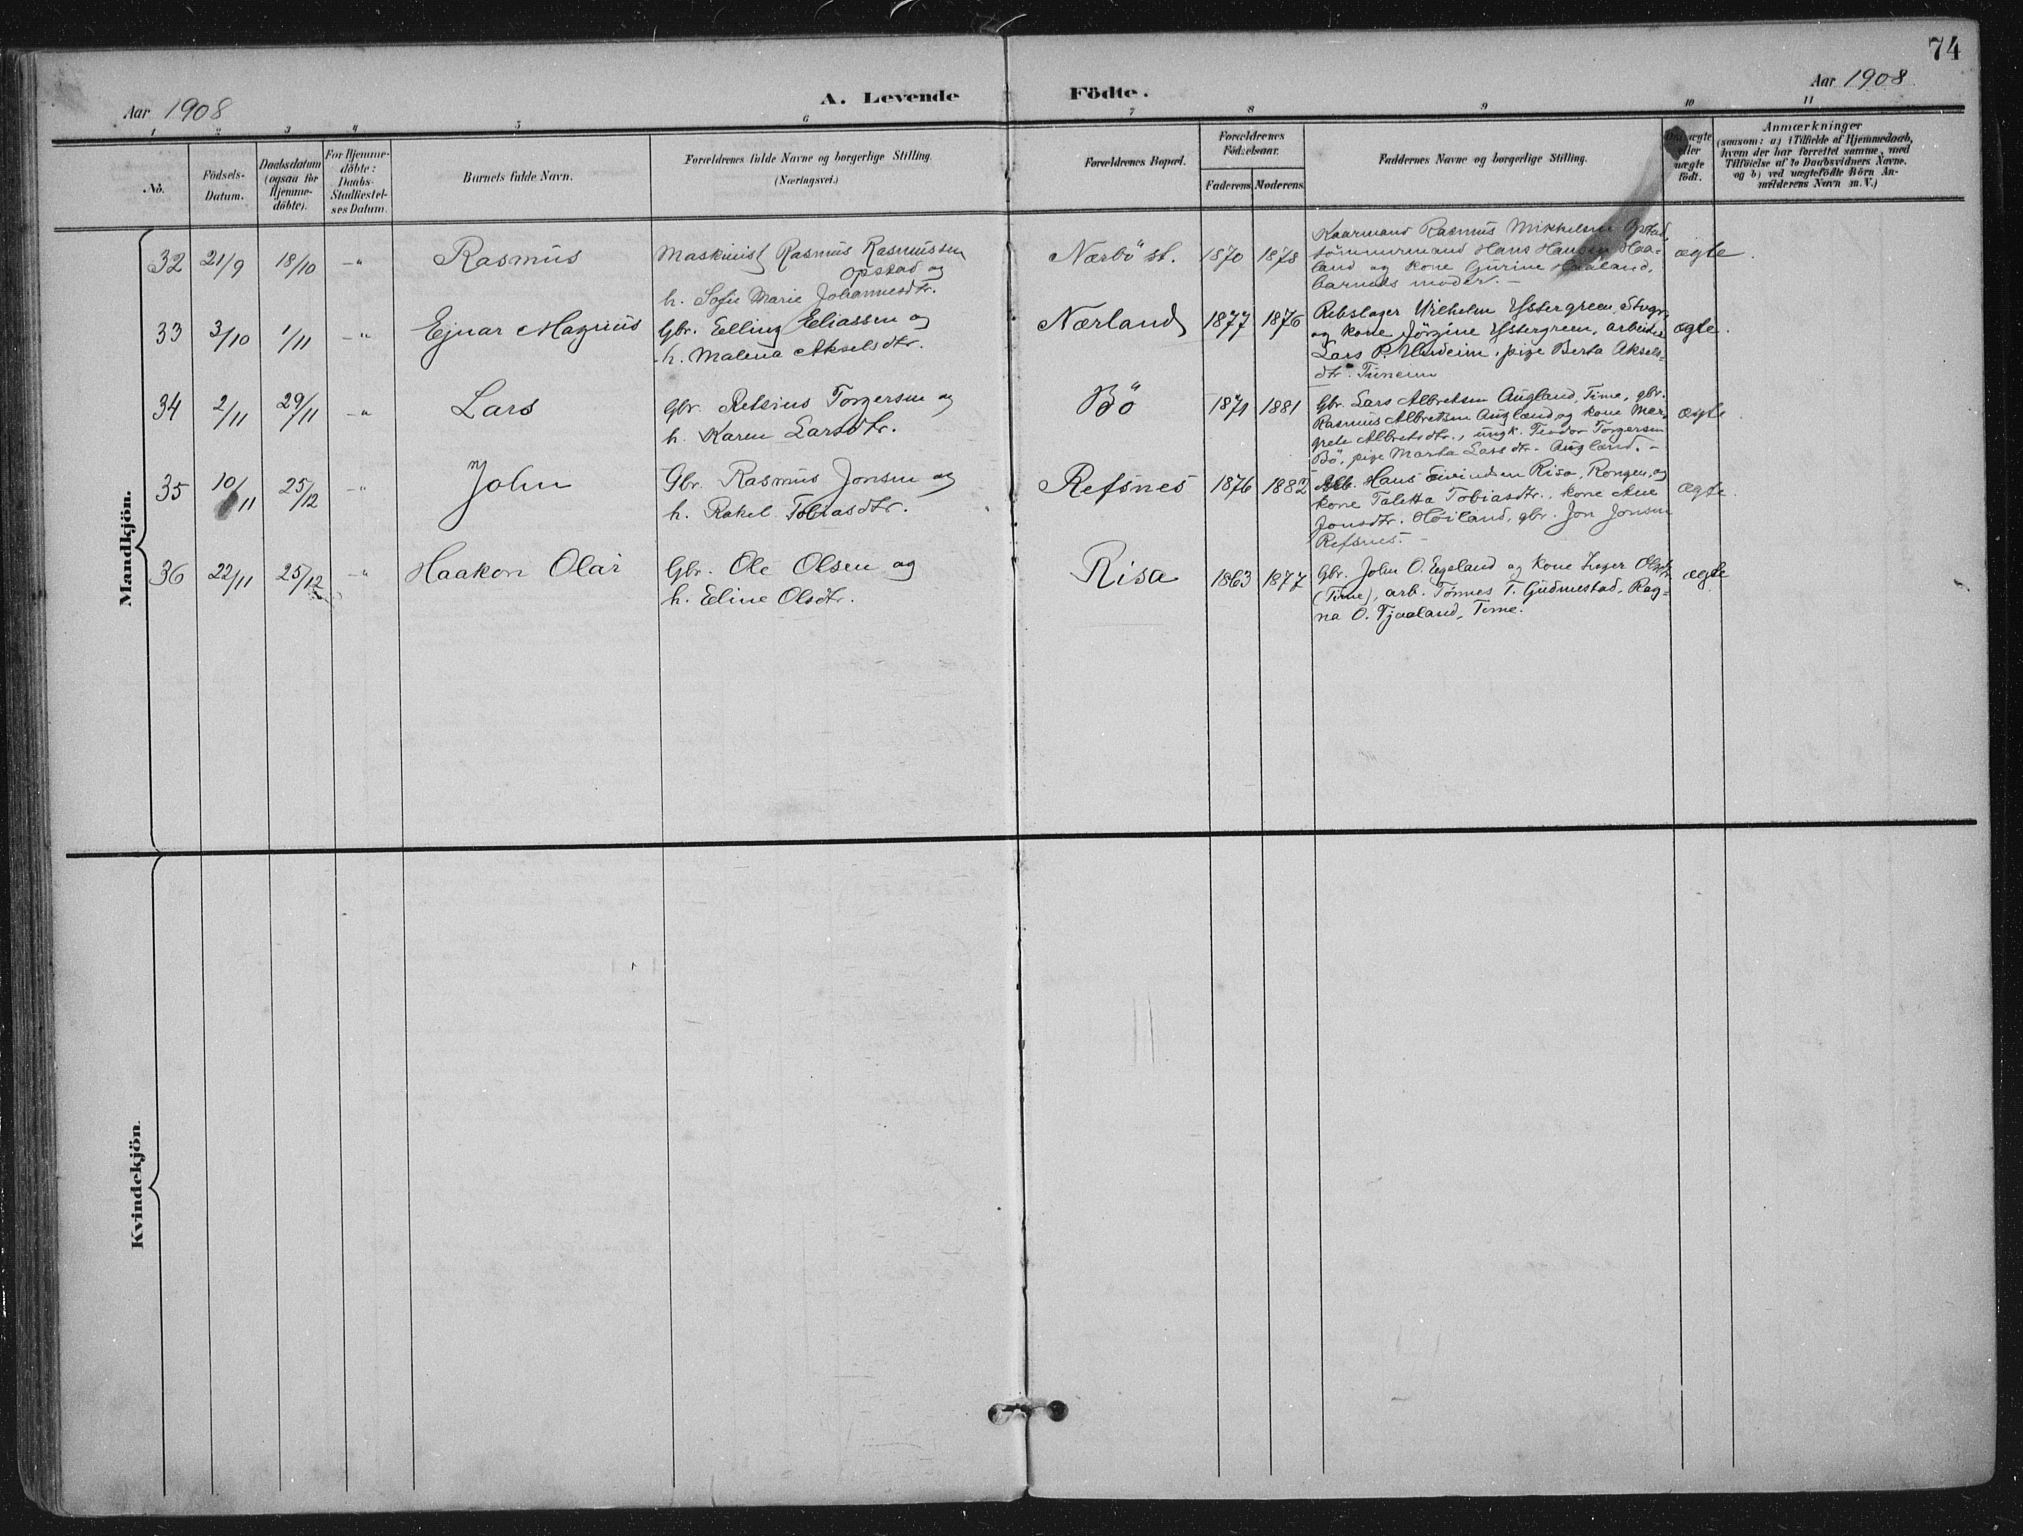 74
Aar 1908
A. Levende
Födte.
Aar 1908
1 2 3 4 5 6 7 8 9 10 11
No.
Födsels-
Datum.
Daabsdatum
(ogsaa for
Hjemme-
döbte).
For Hjemme-
döbte:
Daabs-
Stadfæstel-
ses Datum.
Barnets fulde Navn.
Forældrenes fulde Navne og borgerlige Stilling.
(Næringsvei.)
Forældrenes Bopæl.
Forældrenes
Födselsaar.
Faderens Moderens
Faddernes Navne og borgerlige Stilling.
ægte
eller
uægte
födt.
Anmærkninger
(saasom: a) i Tilfælde af Hjemmedaab,
hvem der har forrettet samme, med
Tilföielse af to Daabsvidners Navne,
og b) ved uægtefödte Börn An-
melderens Navn m. V.)
Mandkjön.
32 21/9 18/10 -"- Rasmus
Maskinist Rasmus Rasmussen
Opstad og
h. Sofie Marie Johannesdtr.
Nærbö st. 1870 1878
Kaarmand Rasmus Mikkelsen Opstad,
tömmermand Hans Hansen Haa-
land og kone Gurine Haaland,
barnets moder. -
ægte.
33 3/10 1/11 -"- Ejnar Magnus
Gbr. Elling Eliassen og
h. Malena Akselsdtr.
Nærland 1877 1876
Rebslager Vilhelm Ystergreen,
og kone Jörgine Ystergreen, arbeider
Lars P. pige Berta Aksels-
dtr.
ægte.
34 2/11 29/11 -"- Lars
Gbr. Refsius Torgersen og
h. Karen Larsdtr.
Bö 1871 1881
Gbr. Lars Albretsen Augland, Time, gbr.
Rasmus Albretsen Augland og kone Mar-
grete Albretsdtr., ungk. Teodor Torgersen
Bö, pige Marta Larsdtr. Augland. -
ægte.
35 10/11 25/12 -"- John
Gbr. Rasmus Jonsen og
h. Rakel Tobiasdtr.
Refsnes 1876 1882
Hans Eivindsen Risa, Rongen, og
kone Taletta Tobiasdtr., kone Ane
Jonsdtr. Höiland, gbr. Jon Jonsen
Refsnes. -
ægte.
36 22/11 25/12 -"- Haakon Olai
Gbr. Ole Olsen og
h. Eline Olsdtr.
Risa 1863 1877
Gbr. John O. Egeland og kone Inger Olsdtr
(Time), arb. Tönnes T. Gudmestad, Rag-
na O. Tjaaland, Time.
ægte.
Kvindekjön.